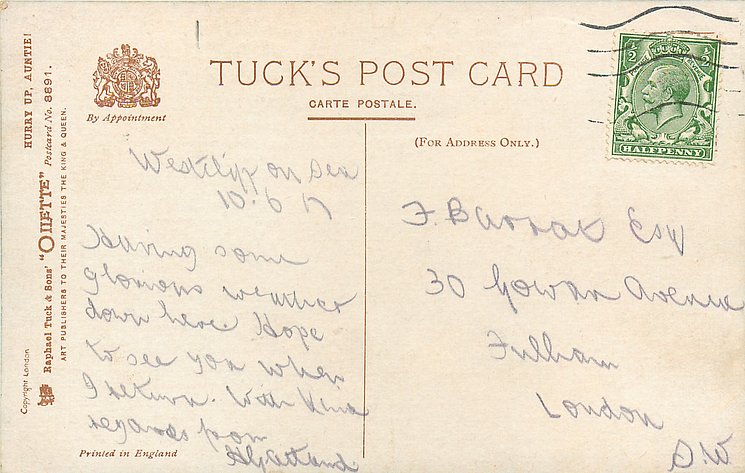 TUCK'S POST CARD
CARTE POSTALE.
By Appointment
(FOR ADDRESS ONLY.)
HURRY UP, AUNTIE!
Raphael Tuck & Sons' "OILETTE" Postcard No. 8891.
ART PUBLISHERS TO THEIR MAJESTIES THE KING & QUEEN.
Copyright London
½ ½
HALFPENNY
Westcliff on Sea
10.6.17
Having some
glorious weather
down here Hope
to see you when
I return. With kind
regards from
Printed in England
F. Esq
30 Gowan Avenue
Fulham
London
S.W